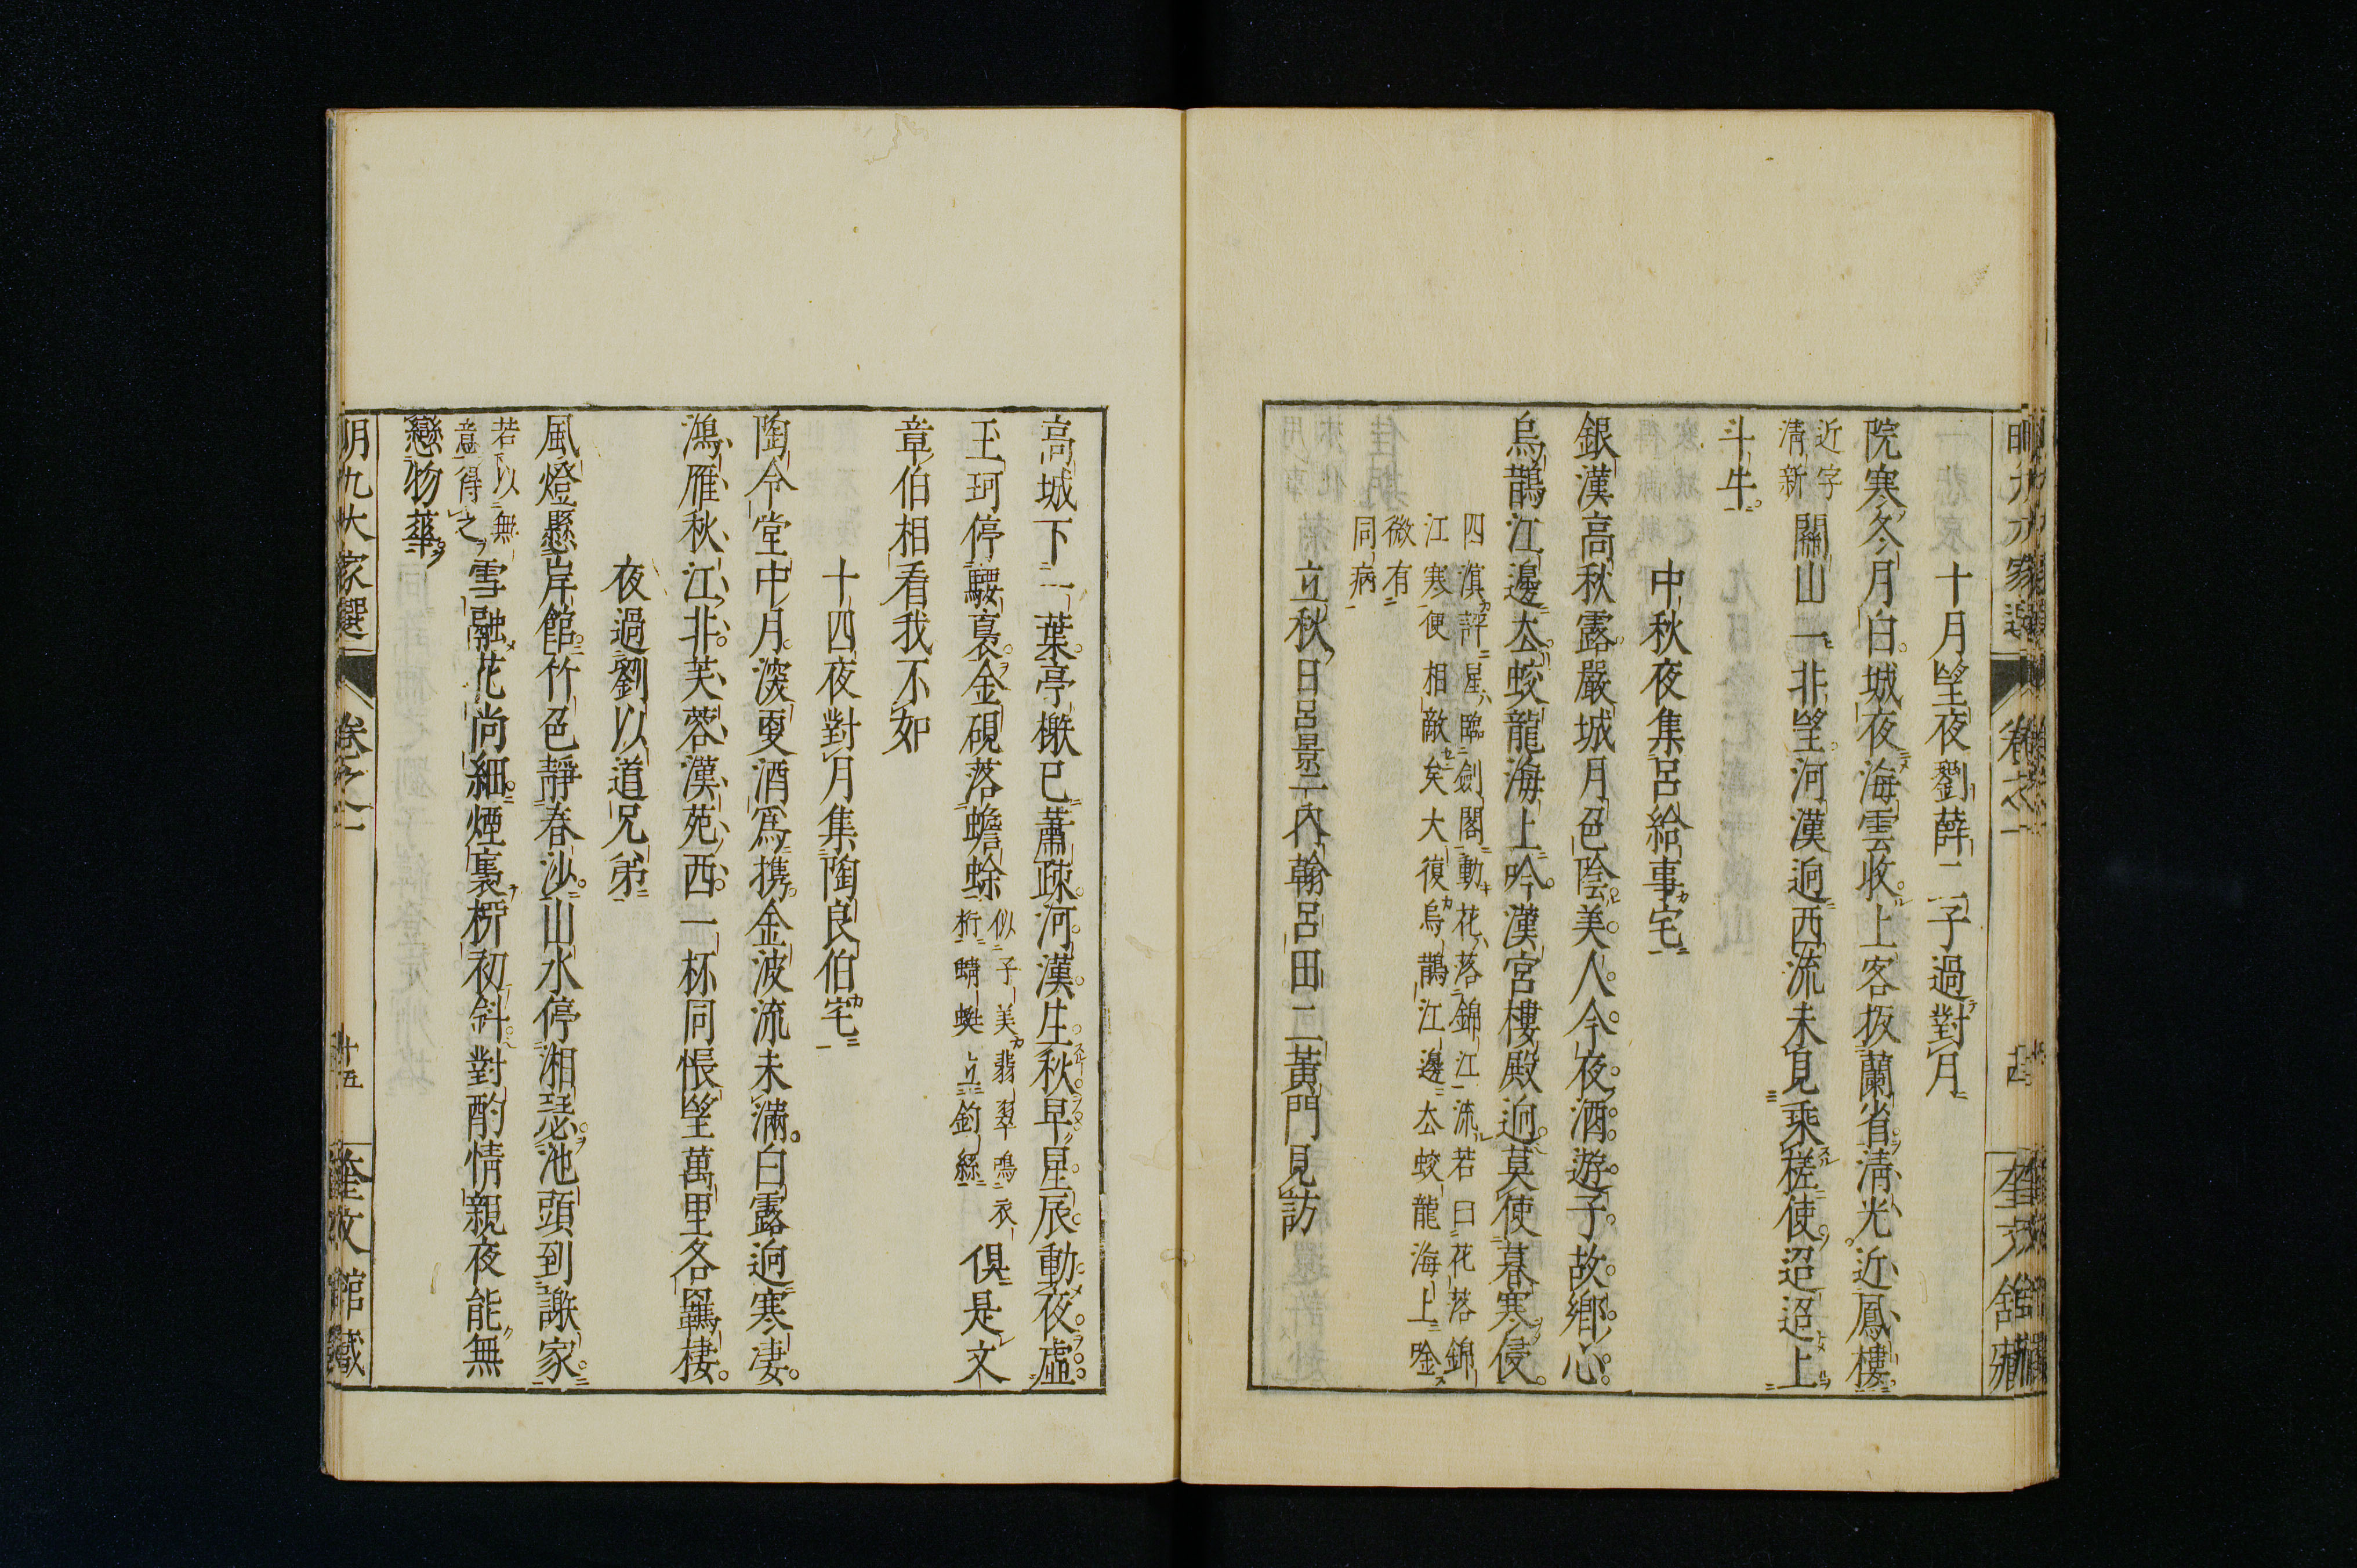 十月望夜劉薛二子過對月
院寒冬月白城夜海雲收上客扳蘭省清光近鳳樓
近字
清新
關山一非望河漢逈西流未見乘槎使迢迢上
斗牛
中秋夜集呂給事宅
銀漢高秋露嚴城月色陰美人今夜酒遊子故鄉心
烏鵲江邊厺蛟龍海上吟漢宮樓殿逈莫使暮寒侵
四溟評星臨劍閣動花落錦江流若曰花落錦
江寒便相敵矣大復烏鵲江邊厺蛟龍海上唫
微有
同病
立秋日呂景二内翰呂田二黃門見訪
高城下一葉亭檄已蕭疎河漢生秋早星辰動夜虛
玉珂停騕褭金硯落蟾蜍
似子美翡翠鳴衣
桁蜻蜓立釣絲
俱是文
章伯相看我不如
十四夜對月集陶良伯宅
陶令堂中月深更酒爲携金波流未滿白露逈寒凄
鴻雁秋江非芙蓉漢苑西一杯同悵望萬里各羈棲
夜過劉以道兄弟
風燈懸岸館竹色靜春沙山水停湘瑟池頭到謝家
若以無
意得之
雪融花尚細煙裏柳初斜對酌情親夜能無
戀物華
明九大家選
卷之一
十五
奎文館藏